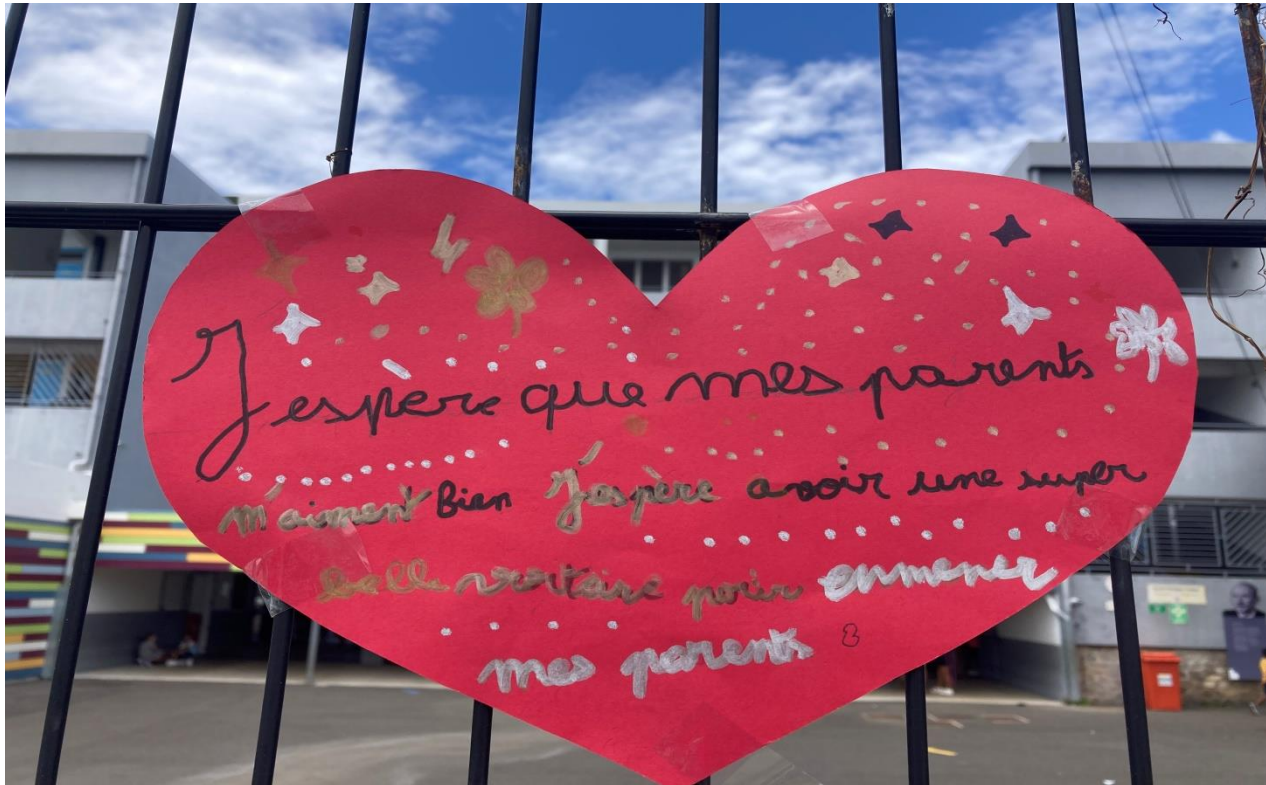 J'espere que mes parents
m'aiment Bien J'espère avoir une super
belle voitaire pour enmener
mes parents